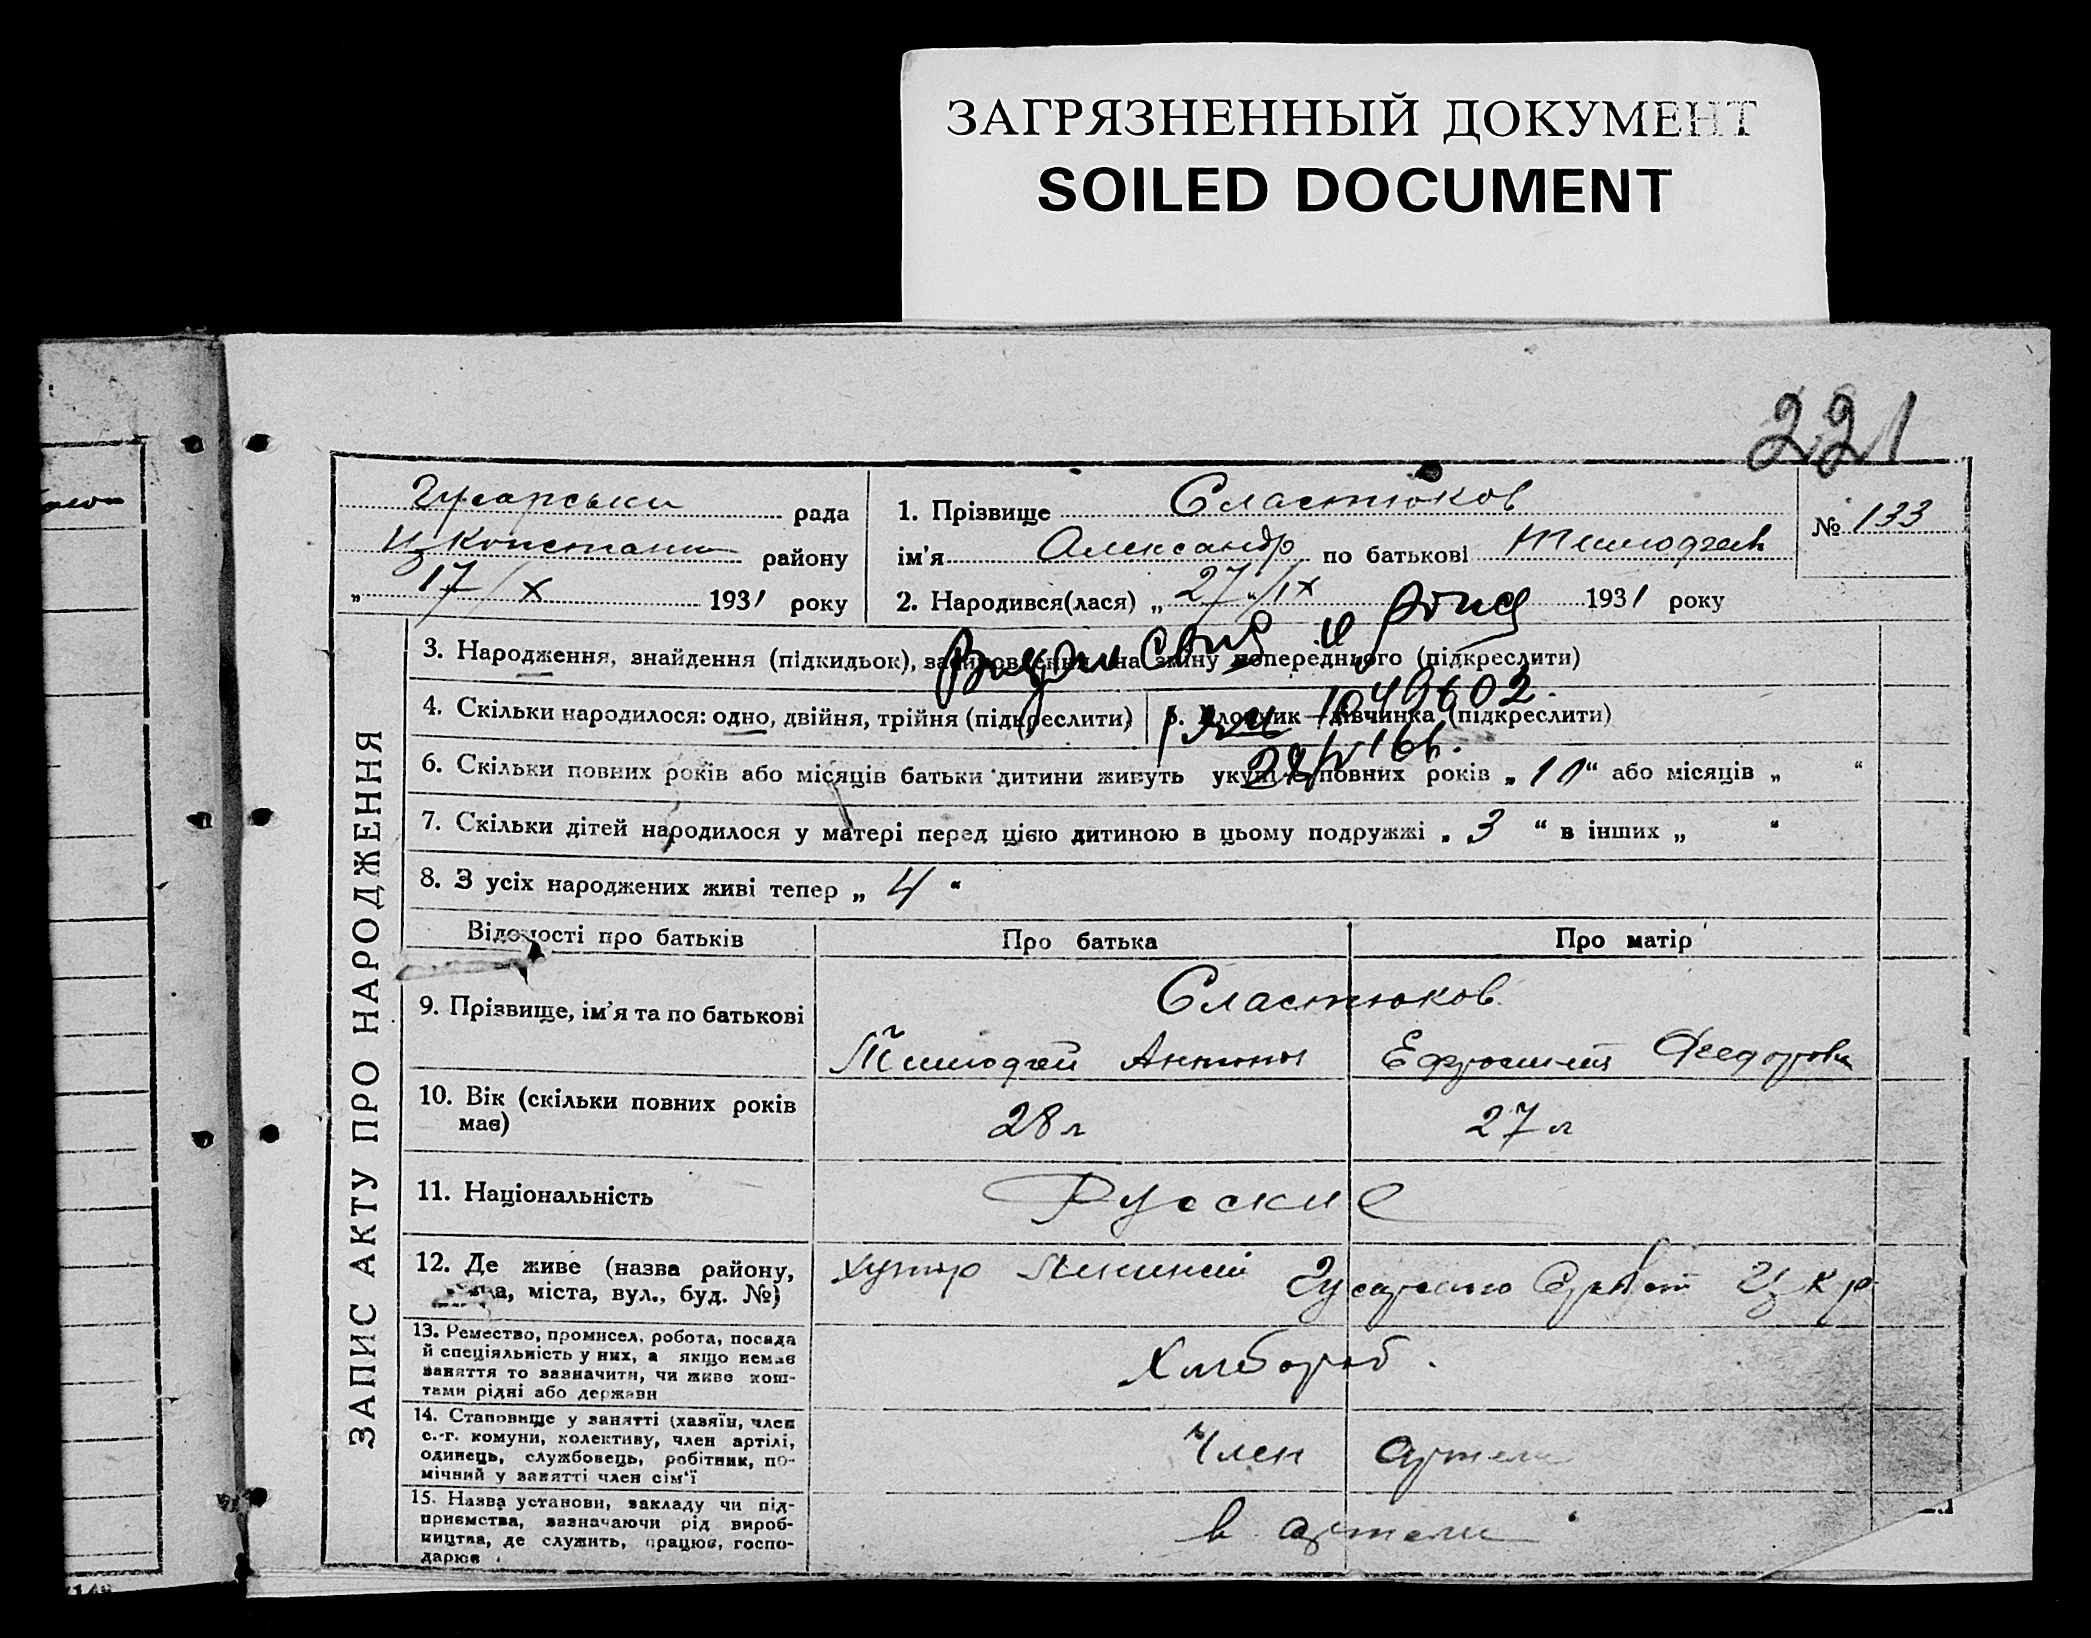 ЗАГРЯЗНЕННЫЙ ДОКУМЕНТ
SOILED DOCUMENT
221
Гусарськи рада
района
„ 17/X 1931 року
1. Прізвище Сластюков
ім'я Александр по батькові
2. Народився(лася) „ 27 " IX 1931 року
№ 133
ЗАПИС АКТУ ПРО НАРОДЖЕННЯ
3. Народження, знайдення (підкидьок), на зміну попереднього (підкреслити)
4. Скільки народилося: одно, двійня, трійня (підкреслити)
5. Хлопчик—дівчинка (підкреслити)
1049602.
6. Скільки повних років або місяців батьки дитини живуть укупі повних років „ 10 “ або місяців „ “
7. Скільки дітей народилося у матері перед цією дитиною в цьому подружжі „ 3 “ в інших „ “
8. З усіх народжених живі тепер „ 4 “
Відомості про батьків Про батька Про матір
Сластюков
9. Прізвище, ім'я та по батькові
10. Вік (скільки повних років
має) 28 л 27 л
11. Національність Русские
12. Де живе (назва району,
міста, вул., буд. №) хутор
13. Ремество, промисел, робота, посада
й спеціяльність у них, а якщо немає
заняття то зазначити, чи живе кош-
тами рідні або держави
Хлебороб.
14. Становище у занятті (хазяїн, член
с.-г. комуни, колективу, член артілі,
одинець, службовець, робітник, по-
мічний у занятті член сім'ї
Член артели
15. Назва установи, закладу чи під-
приємства, зазначаючи рід вироб-
ництва, де служить, працює, госпо-
дарює
в артели